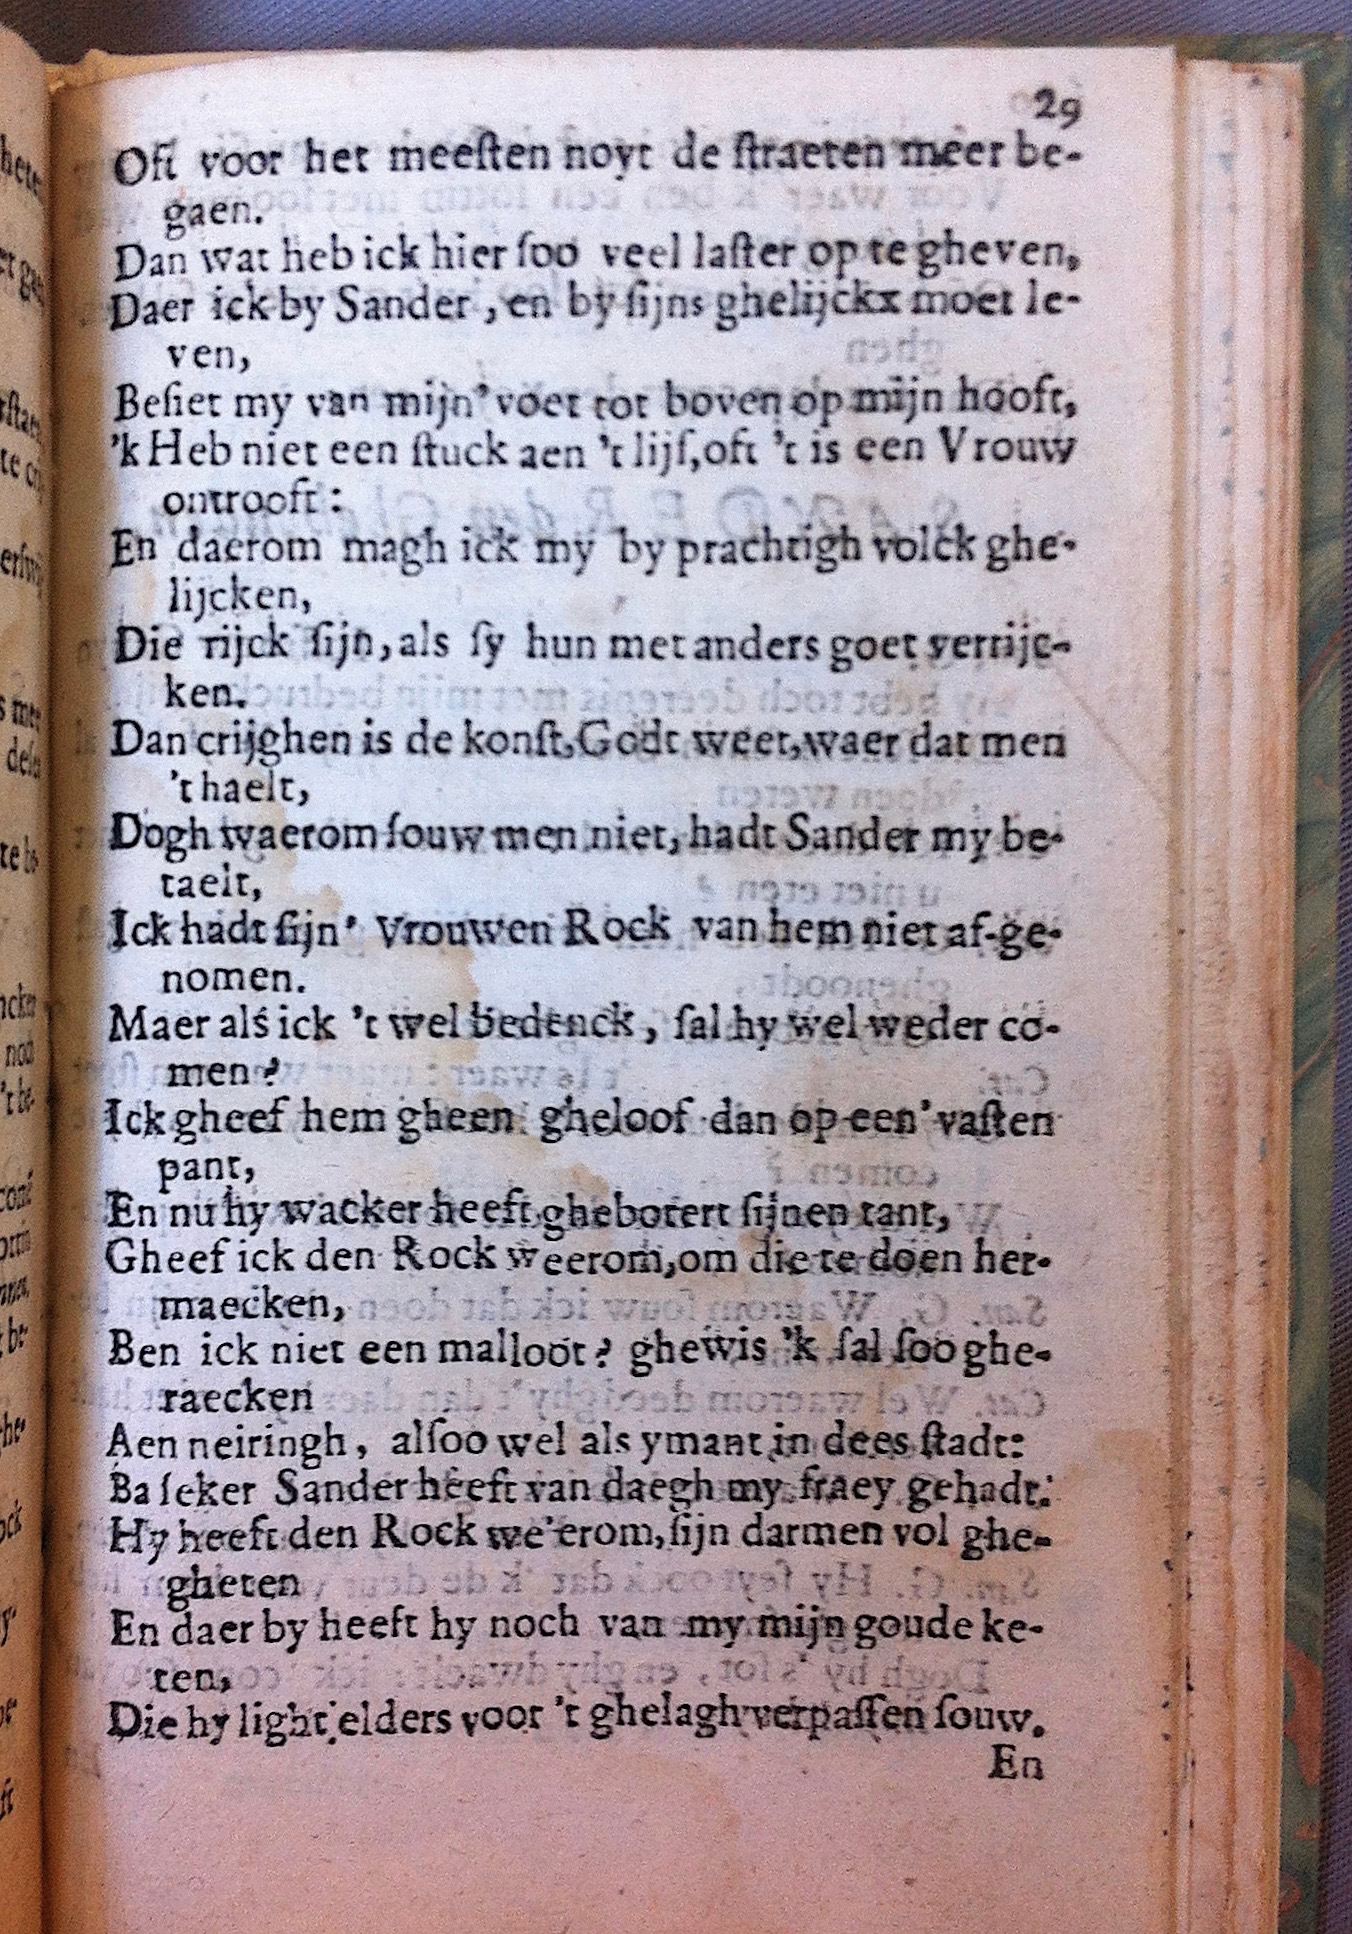 29
Oft voor het meeſten noyt de ſtraeten meer be-
gaen.
Dan wat heb ick hier ſoo veel laſter op te gheven,
Daer ick by Sander, en by ſijns ghelijckx moet le-
ven,
Beſiet my van mijn' voet tot boven op mijn hooft,
'k Heb niet een ſtuck aen 't lijf, oft 't is een Vrouw
ontrooft:
En daerom magh ick my by prachtigh volck ghe-
lijcken,
Die rijck ſijn, als ſy hun met anders goet verrijc-
ken.
Dan crijghen is de konſt, Godt weet, waer dat men
't haelt,
Dogh waerom ſouw men niet, hadt Sander my be-
taelt,
Ick hadt ſijn' Vrouwen Rock van hem niet af-ge-
nomen.
Maer als ick 't wel bedenck, ſal hy wel weder co-
men?
Ick gheef hem gheen gheloof dan op een' vaſten
pant,
En nu hy wacker heeft ghebotert ſijnen tant,
Gheef ick den Rock weerom, om die te doen her-
maecken,
Ben ick niet een malloot? ghewis 'k ſal ſoo ghe-
raecken
Aen neiringh, alſoo wel als ymant in dees ſtadt:
Ba ſeker Sander heeft van daegh my fraey gehadt:
Hy heeft den Rock we'erom, ſijn darmen vol ghe-
gheten
En daer by heeft hy noch van my mijn goude ke-
ten,
Die hy light elders voor 't ghelagh verpaſſen ſouw.
En